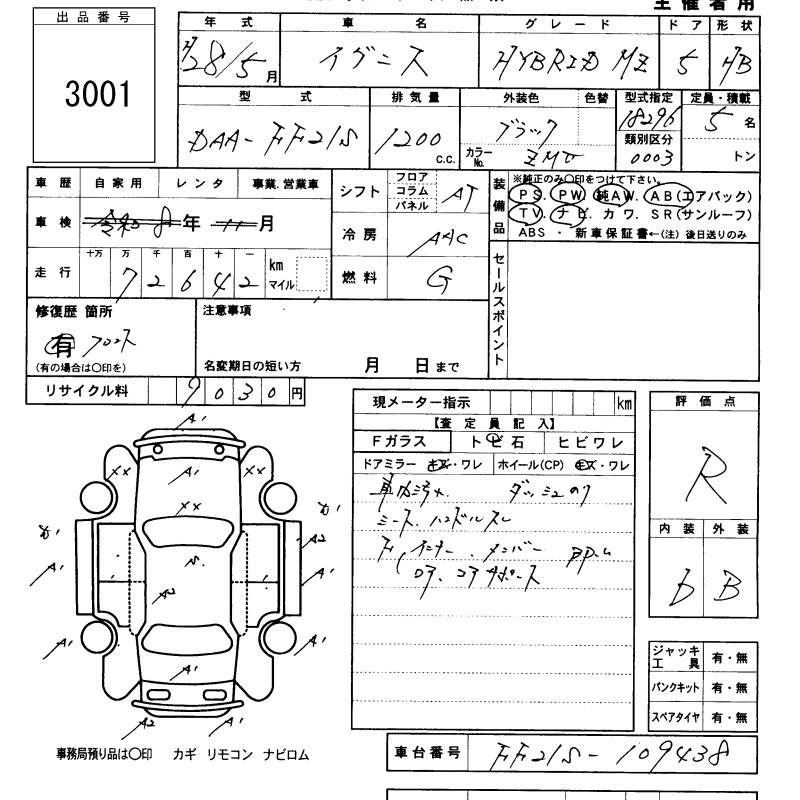 主催者用
出品番号
3001
年式 車名 グレード ドア 形状
H28/5月 イグニス HYBRID MZ 5 HB
型式 排気量 外装色 色替 型式指定 定員・積載
DAA-FF21S 1200 c.c. ブラック 18296 5 名
カラーNo. 類別区分
0003 トン
車歴 自家用 レンタ 事業.営業車
車検 令和8年11月
走行 十万 万 千 百 十 一 km マイル
7 2 6 4 2
シフト フロア コラム パネル AT
冷房 AAC
燃料 G
装備品
※純正のみ〇印をつけて下さい。
PS. PW. 純AW. AB(エアバック)
TV. ナビ. カワ. SR(サンルーフ)
ABS ・ 新車保証書←(注) 後日送りのみ
セールスポイント
修復歴 箇所
有 フロント
(有の場合は〇印を)
注意事項
名変期日の短い方 月 日まで
リサイクル料 9 0 3 0 円
現メーター指示 km
【査定員記入】
Fガラス トビ石 ヒビワレ
ドアミラー キズ・ワレ ホイール(CP) キズ・ワレ
車内汚れ ダッシュのり
シート.ハンドルスレ
インナー.メンバー
ロア.コアサポート
評価点
R
内装 外装
D B
ジャッキ工具 有・無
パンクキット 有・無
スペアタイヤ 有・無
A1
A1
XX XX
XX
A2
A1 A1
A2
A1 A1
A1
A2 A1
事務局預り品は〇印 カギ リモコン ナビロム
車台番号 FF21S-109438